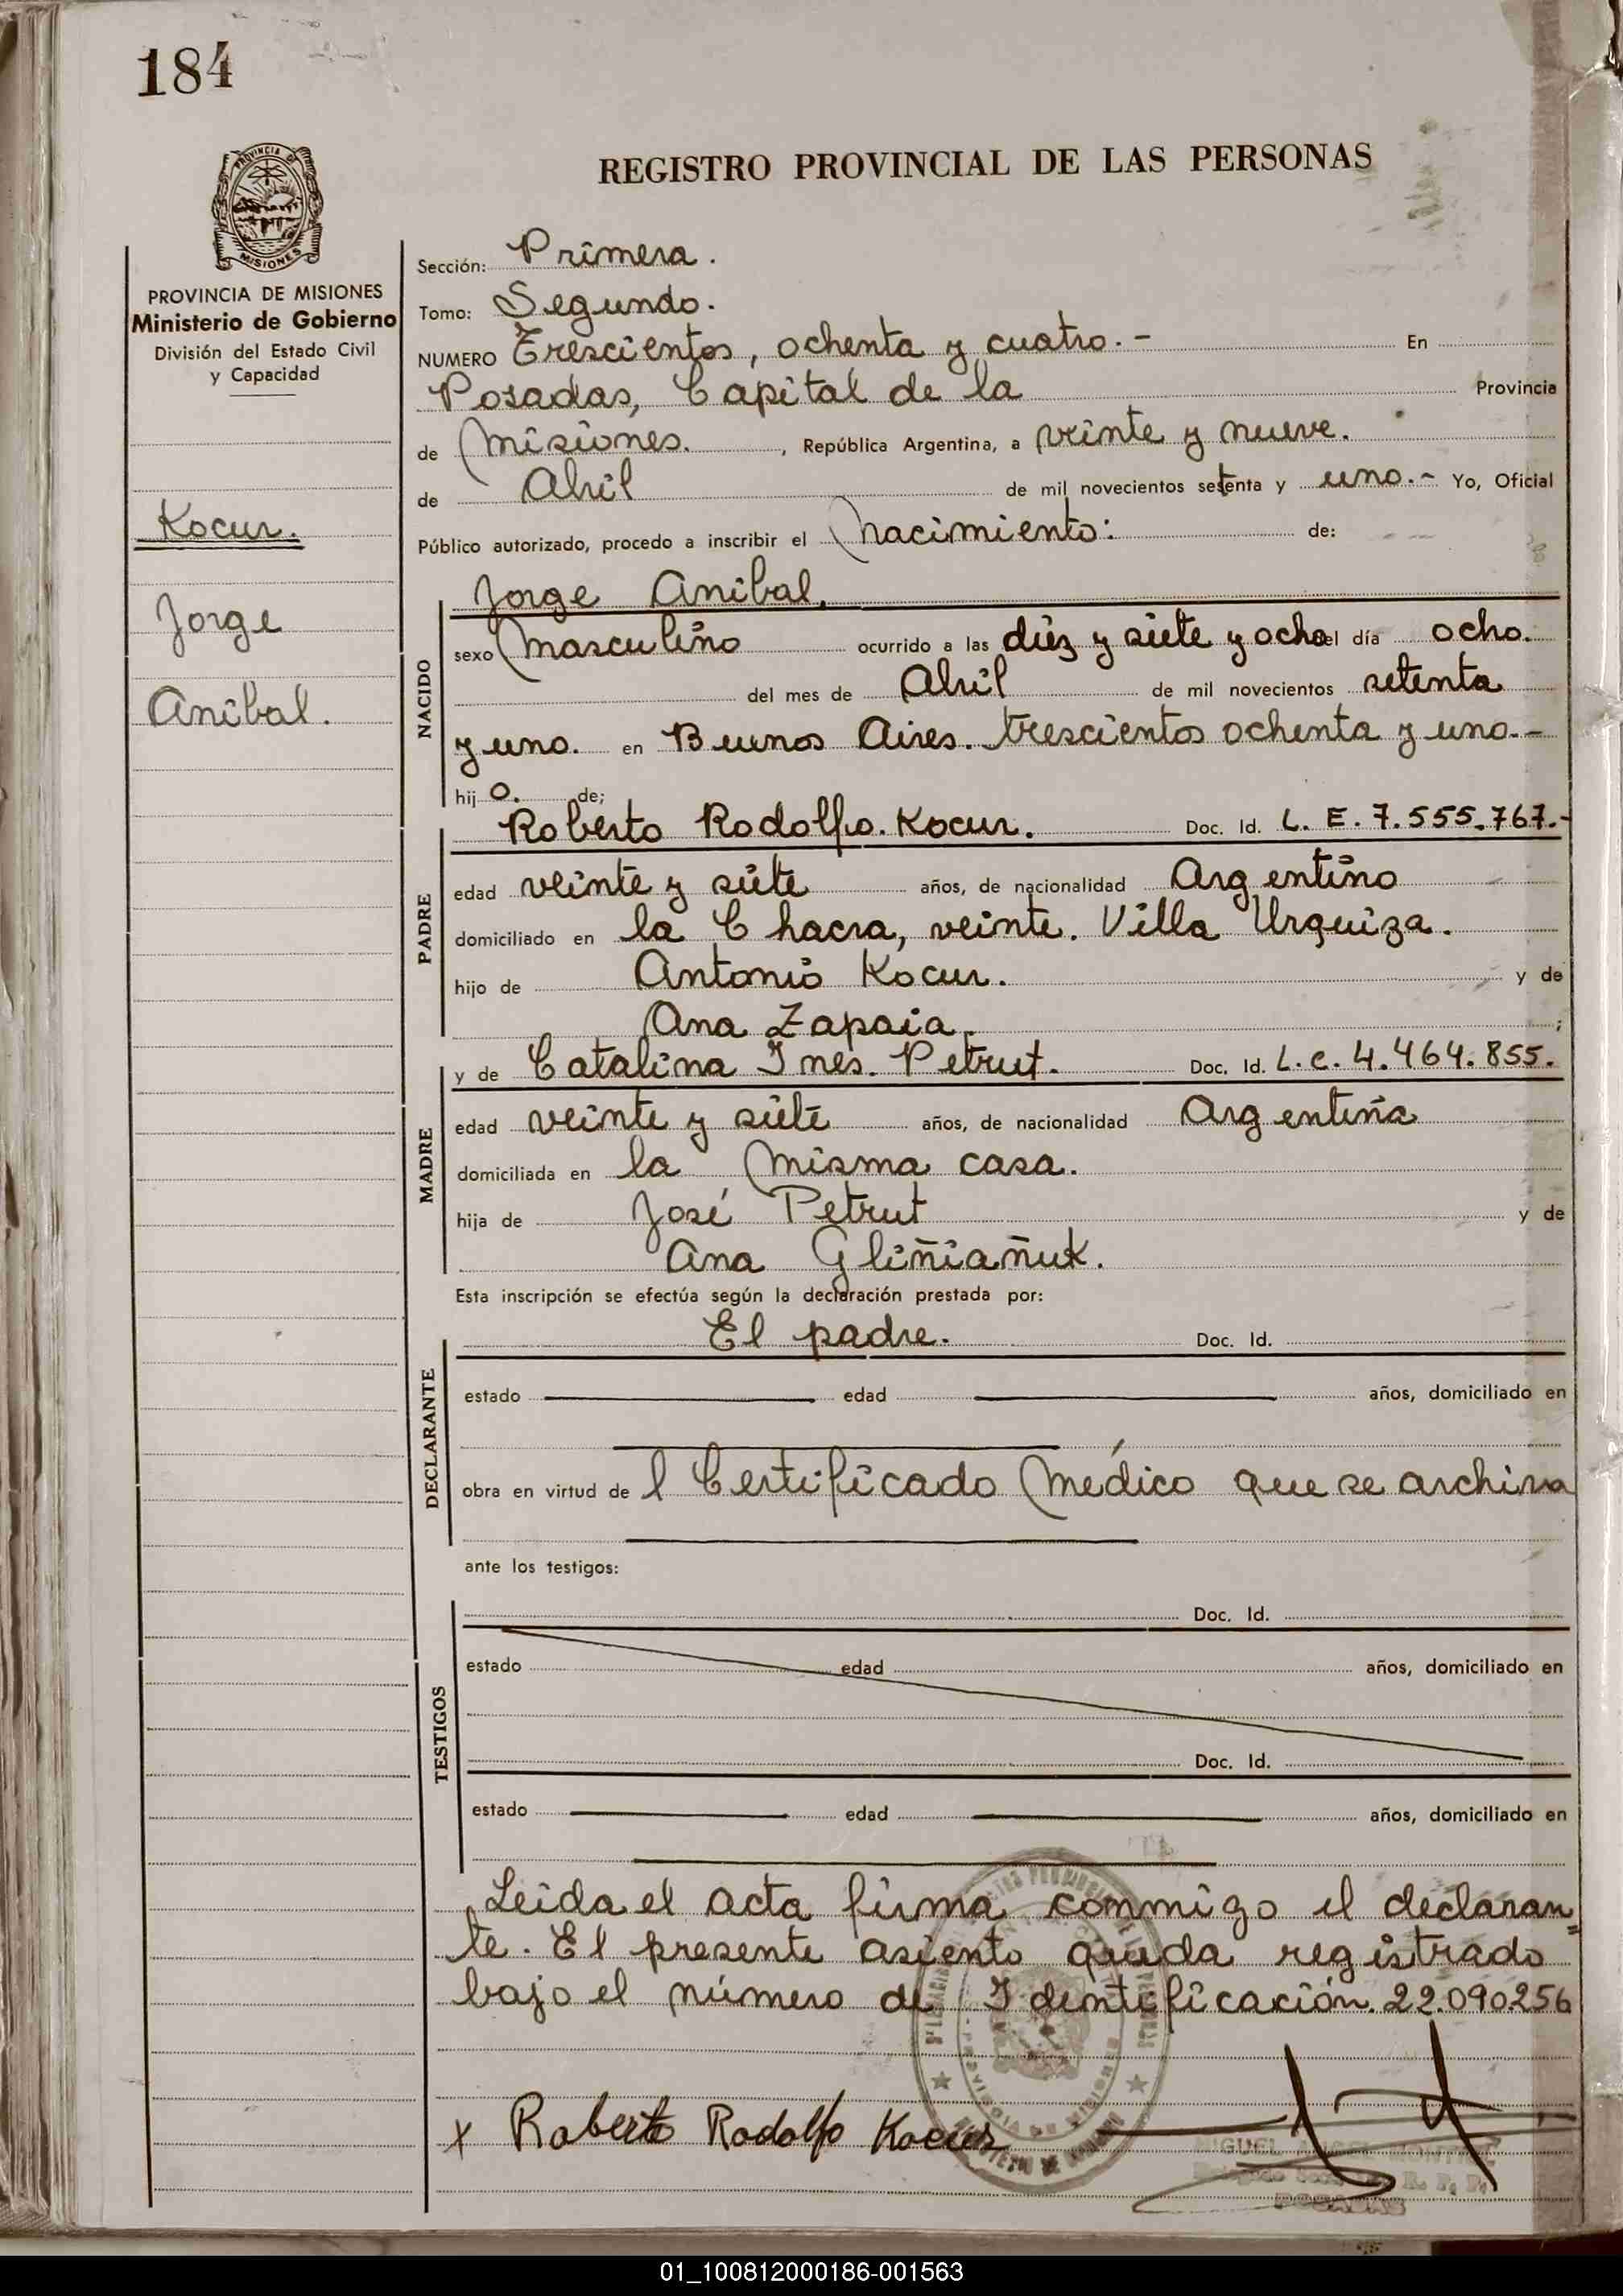 184
PROVINCIA DE
MISIONES
REGISTRO PROVINCIAL DE LAS PERSONAS
PROVINCIA DE MISIONES
Ministerio de Gobierno
División del Estado Civil
y Capacidad
Kocur.
Jorge
Anibal.
Sección: Primera.
Tomo: Segundo.
NUMERO Trescientos, ochenta y cuatro.- En
Posadas, Capital de la Provincia
de Misiones. , República Argentina, a veinte y nueve.
de Abril de mil novecientos setenta y uno.- Yo, Oficial
Público autorizado, procedo a inscribir el Nacimiento: de:
NACIDO
Jorge Anibal.
sexo Masculino ocurrido a las diéz y siete y ocho el día ocho.
del mes de Abril de mil novecientos setenta
y uno. en Buenos Aires. trescientos ochenta y uno.-
hij o. de;
PADRE
Roberto Rodolfo. Kocur. Doc. Id. L. E. 7.555.767.-
edad veinte y siete años, de nacionalidad Argentino
domiciliado en la Chacra, veinte. Villa Urquiza.
hijo de Antonio Kocur. y de
Ana Zapaia. ;
MADRE
y de Catalina Ines. Petrut. Doc. Id. L.C. 4.464.855.
edad veinte y siete años, de nacionalidad Argentina
domiciliada en la Misma casa.
hija de José Petrut y de
Ana Gliñiañuk.
Esta inscripción se efectúa según la declaración prestada por:
DECLARANTE
El padre. Doc. Id.
estado edad años, domiciliado en
obra en virtud de l Certificado Médico que se archiva
ante los testigos:
TESTIGOS
Doc. Id.
estado edad años, domiciliado en
Doc. Id.
estado edad años, domiciliado en
Leida el acta firma conmigo el declaran=
te. El presente asiento queda registrado
bajo el número de Identificación 22.090256
x Roberto Rodolfo Kocur
MIGUEL ANGEL
R. P. P.
POSADAS
01_100812000186-001563